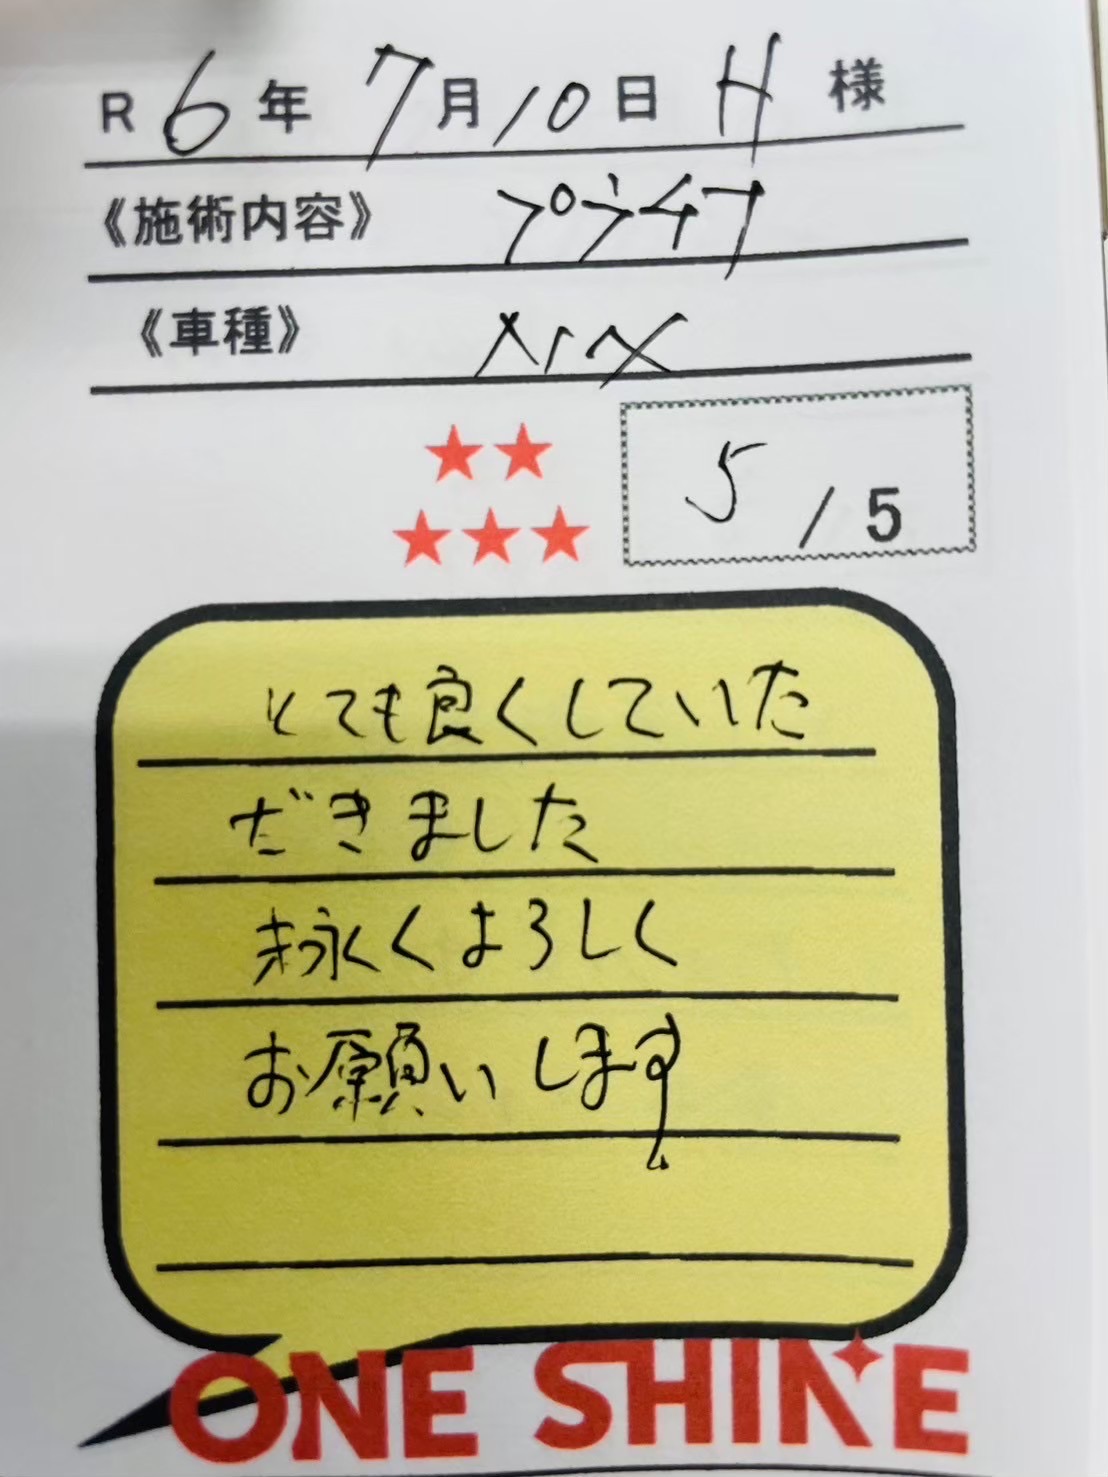 R 6年 7月10日 H 様
《施術内容》
《車種》
★★
★★★
5 / 5
とても良くしていた
だきました
末永くよろしく
お願いします
ONE SHINE